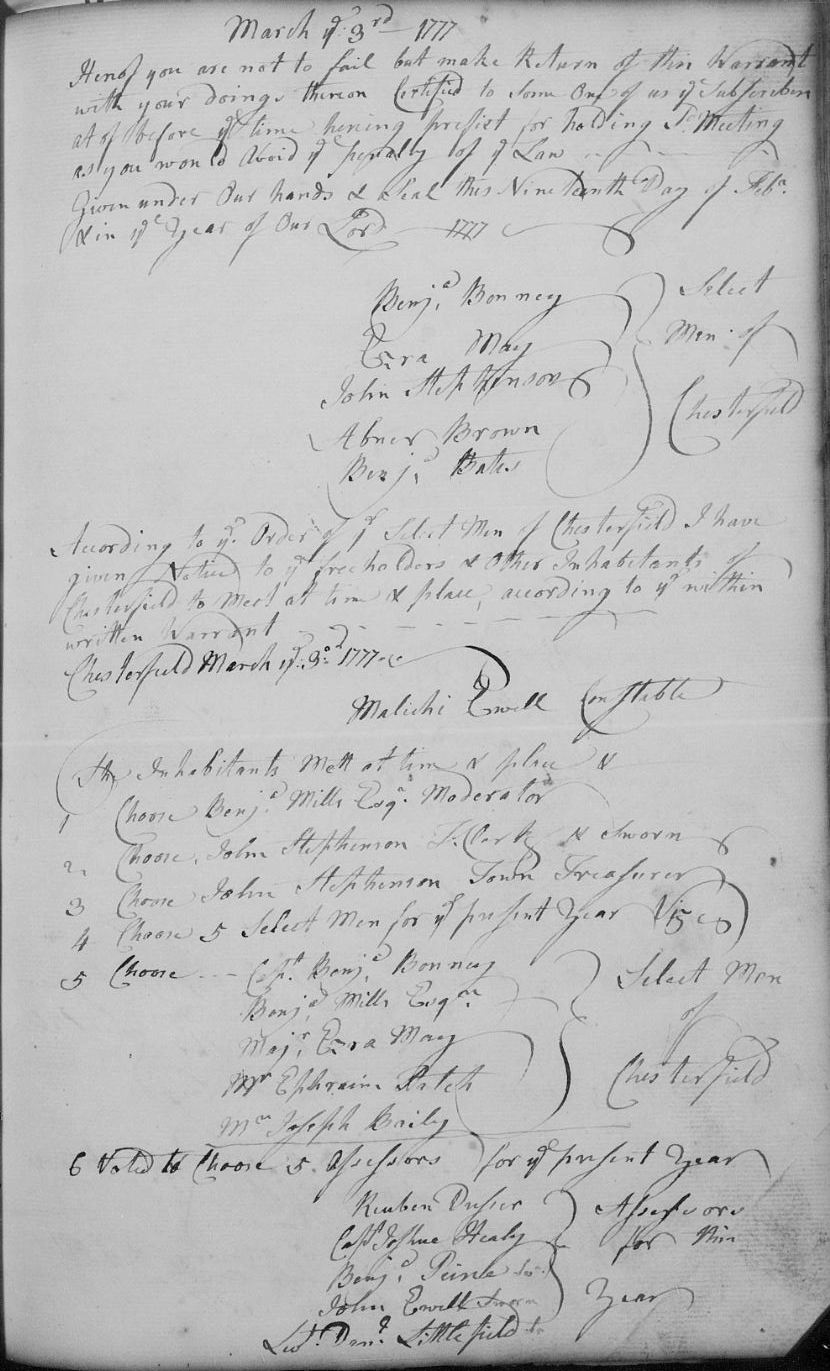 March ye 3rd 1777
Hereof you are not to fail but make Return of this Warrant
with your doings thereon Certified to Some One of us ye Subscribers
at or before ye time herein prefixt for holding Sd Meeting
as you would Avoid ye penalty of ye Law
Given under Our hands & Seal this Nineteenth Day of Feba
& in ye Year of Our Lord 1777
Benja Bonney
Ezra May
John Stephenson
Abner Brown
Benja Bates
Select
Men of
Chesterfield
According to ye Order of ye Select Men of Chesterfield I have
given Notice to ye freeholders & Other Inhabitants of
Chesterfield to Meet at time & place, according to ye within
written Warrant
Chesterfield March ye 3d 1777
Malichi Ewell Constable
The Inhabitants Mett at time & place &
1 Choose Benja Mills Esqr Moderator
2 Choose John Stephenson T. Clerk & Sworn
3 Choose John Stephenson Town Treasurer
4 Choose 5 Select Men for ye present Year
5 Choose Capt Benja Bonney
Benja Mills Esqr
Majr Ezra May
Mr Ephraim Patch
Mr Joseph Baily
Select Men
of
Chesterfield
6 Voted to Choose 5 Assessors for ye present Year
Reuben
Capt Joshua Healy
Benja
John Ewell Sworn
Leut Danl Littlefield
Assessors
for this
Year